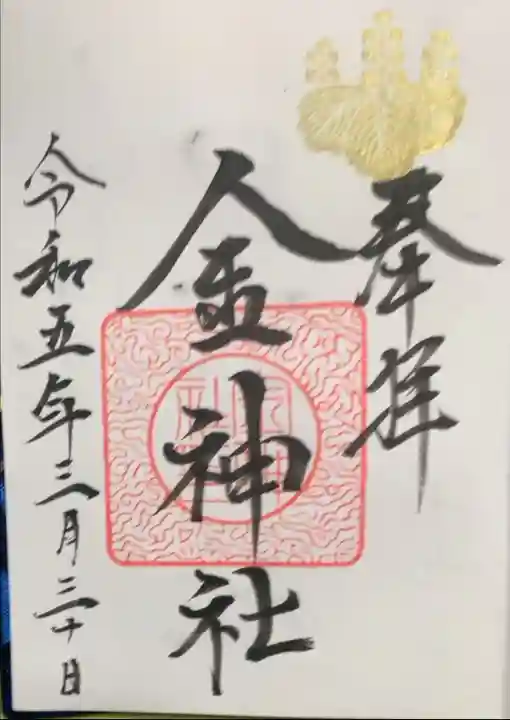 奉拝
金神社
令和五年三月三十日